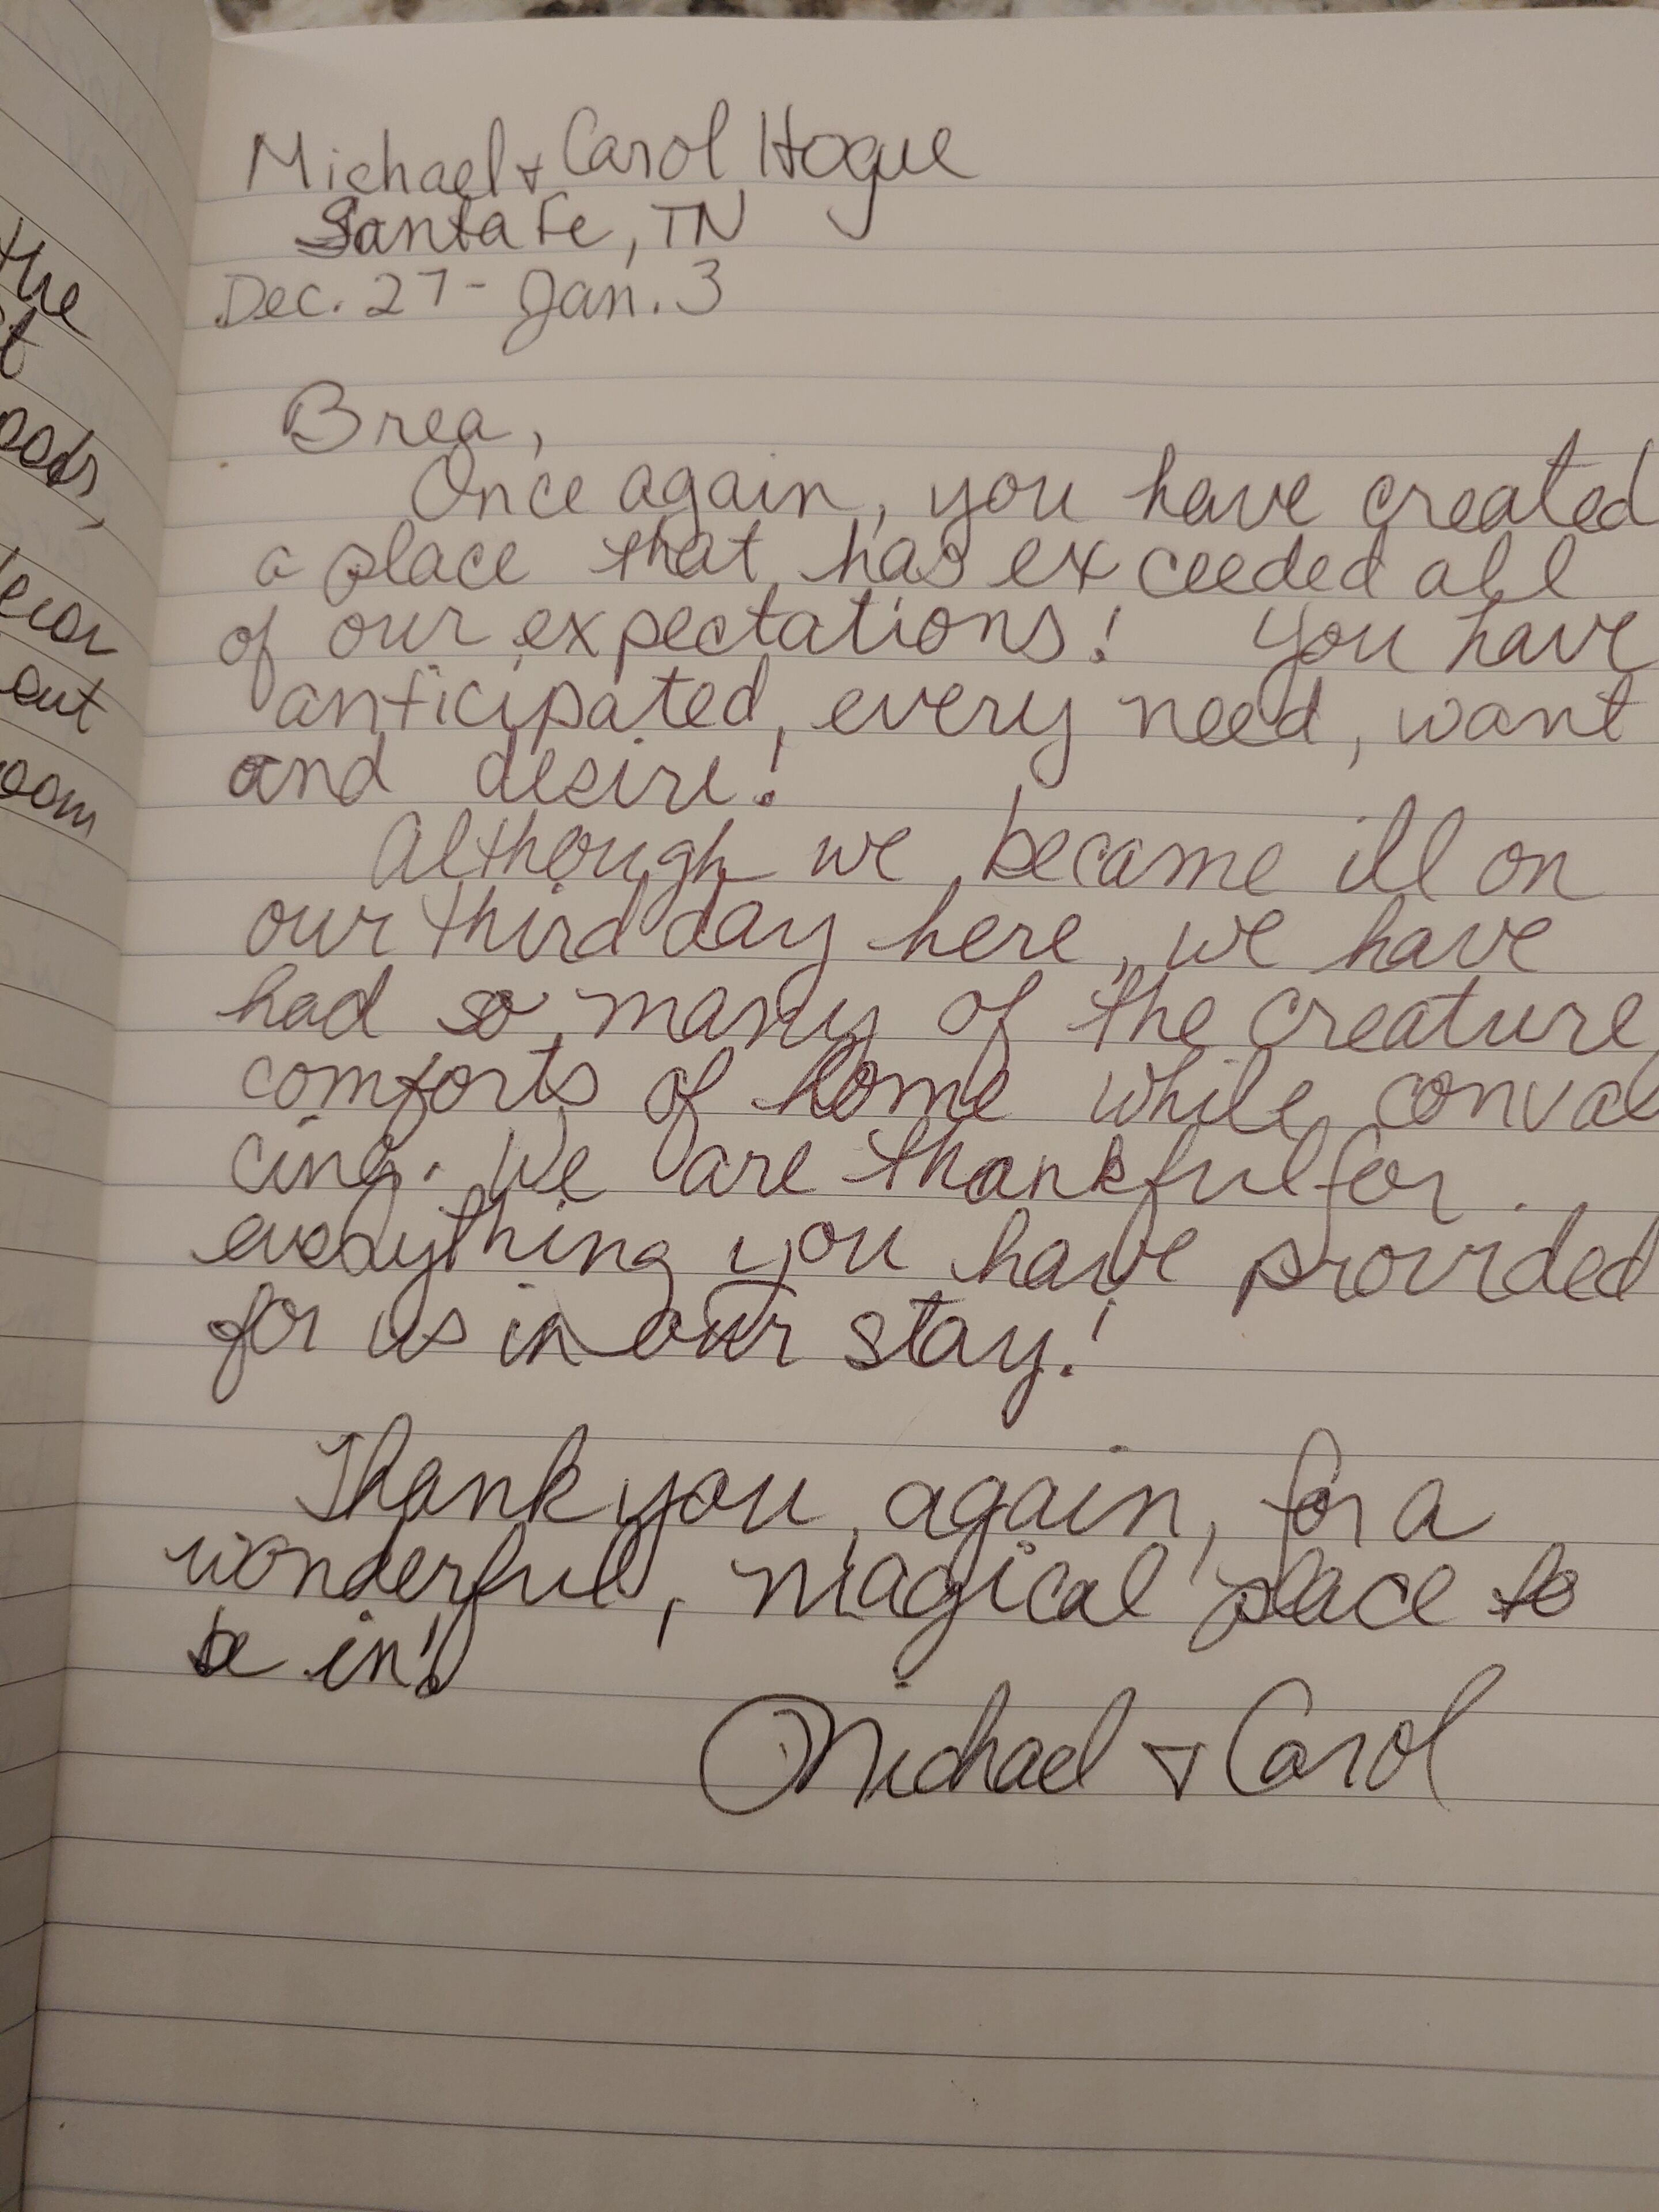 Michael & Carol Hogue
Santa Fe, TN
Dec. 27 - Jan. 3
Brea,
Once again, you have created
a place that has exceeded all
of our expectations! You have
anticipated every need, want
and desire!
Although we became ill on
our third day here, we have
had so many of the creature
comforts of home while conval
cing. We are thankful for
everything you have provided
for us in our stay!
Thank you, again, for a
wonderful, magical place to
be in!
Michael & Carol
the
oods,
out
oom